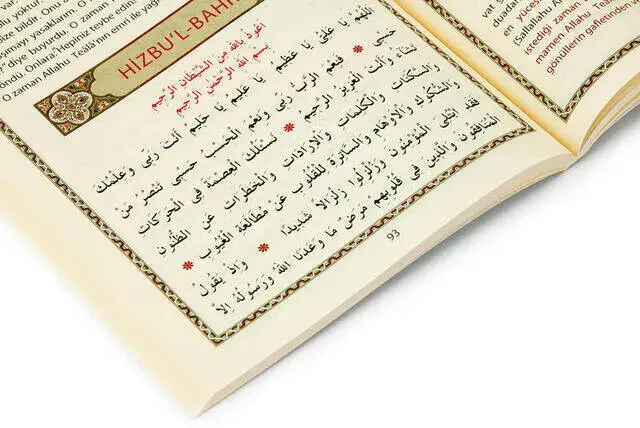 size bildir.
diye buyurdu. O zaman
öndü. Onlara: Hepiniz tevbe edin
O zaman Allahu Teâlâ'nın emri ile
HİZBU'L-BAHR
اَعُوذُ بِاللهِ مِنَ الشَّيْطَانِ الرَّجِيمِ
بِسْمِ اللهِ الرَّحْمٰنِ الرَّحِيمِ
اَللّٰهُمَّ يَا عَلِيُّ يَا عَظِيمُ يَا عَلِيمُ يَا حَلِيمُ اَنْتَ رَبِّي وَعِلْمُكَ
حَسْبِي * فَنِعْمَ الرَّبُّ رَبِّي وَنِعْمَ الْحَسْبُ حَسْبِي تَنْصُرُ مَنْ
تَشَاءُ وَاَنْتَ الْعَزِيزُ الرَّحِيمُ * نَسْئَلُكَ الْعِصْمَةَ فِي الْحَرَكَاتِ
وَالسَّكَنَاتِ وَالْكَلِمَاتِ وَالْاِرَادَاتِ وَالْخَطَرَاتِ عَنِ الظُّنُونِ
وَالشُّكُوكِ وَالْاَوْهَامِ وَالسَّاتِرَةِ لِلْقُلُوبِ عَنْ مُطَالَعَةِ الْغُيُوبِ *
فَقَدِ ابْتُلِيَ الْمُؤْمِنُونَ وَزُلْزِلُوا زِلْزَالًا شَدِيدًا * وَاِذْ يَقُولُ
الْمُنَافِقُونَ وَالَّذِينَ فِي قُلُوبِهِمْ مَرَضٌ مَا وَعَدَنَا اللهُ وَرَسُولُهُ اِلَّا
93
var
duadan
(Sallallahu
en yüces
istediği zaman
mamen Allahu Teâ
gönüllerin gafletinden